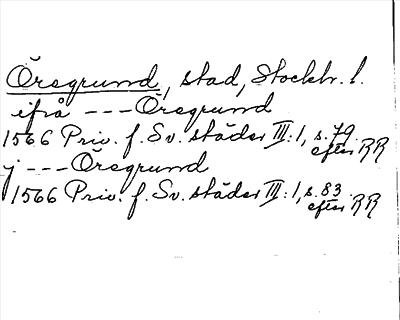 Öregrund, stad, Stockh. l.
ifrå --- Öregrund
1566 Priv. f. Sv. städer III:1, s. 79.
efter RR
j --- Öregrund
1566 Priv. f. Sv. städer III:1, s. 83.
efter RR